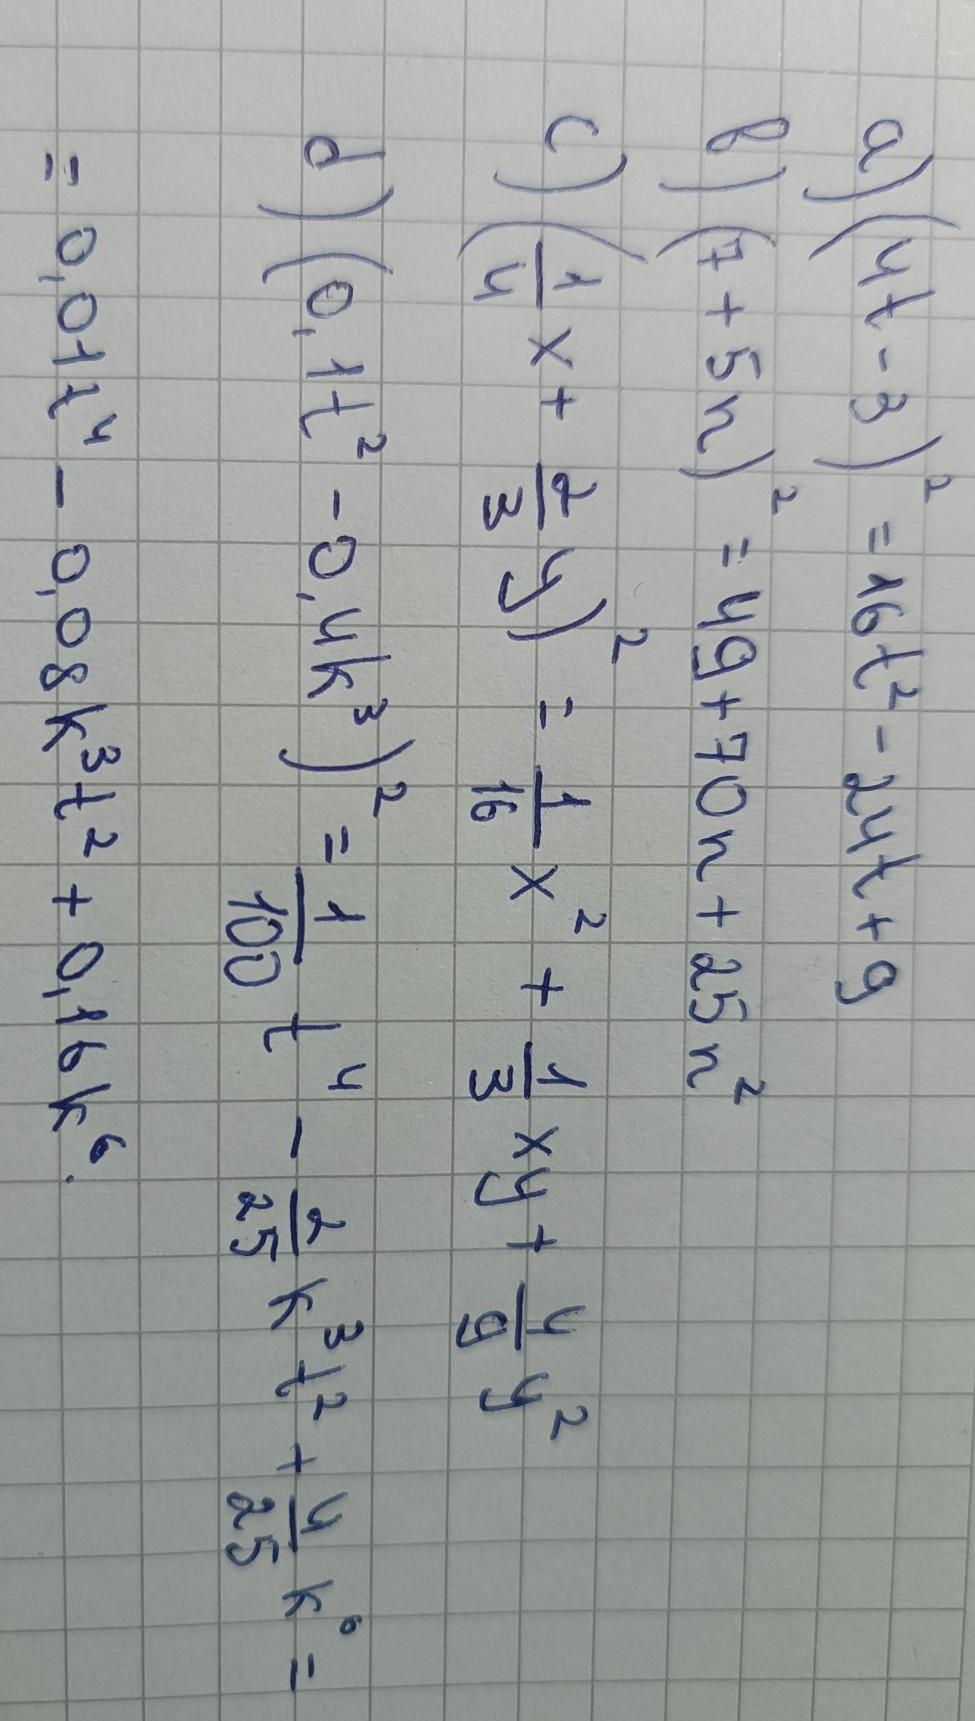 a) (4t-3)² = 16t² - 24t + 9
b) (7+5n)² = 49 + 70n + 25n²
c) (1/4 x + 2/3 y)² = 1/16 x² + 1/3 xy + 4/9 y²
d) (0,1t² - 0,4k³)² = 1/100 t⁴ - 2/25 k³t² + 4/25 k⁶ =
= 0,01t⁴ - 0,08k³t² + 0,16k⁶.